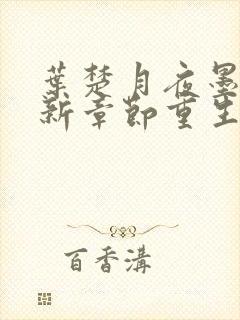 葉楚月夜墨
新章節重生
百香溝